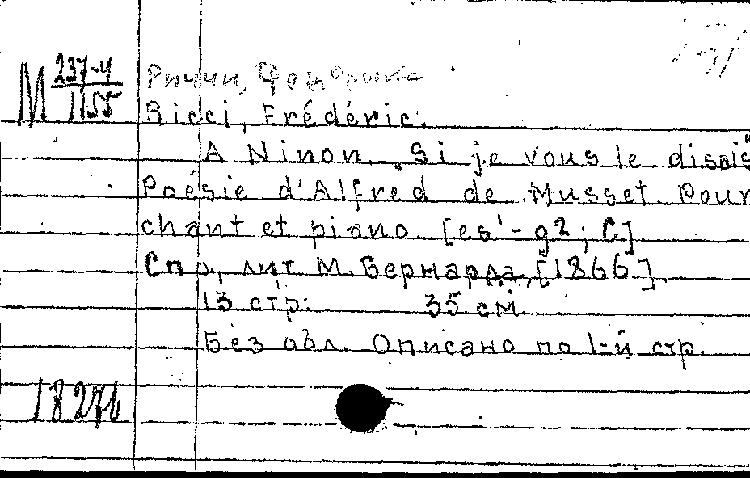 М 237-4
1155
Риччи, Фредерико
Ricci, Frédéric.
A Ninon. „Si je vous le disais
Poésie d'Alfred de Musset Pour
chant et piano [es¹-g2; C]
Спб, лит М. Бернарда, [1866].
13 стр. 35 см.
Без обл. Описано по 1-й стр.
18276